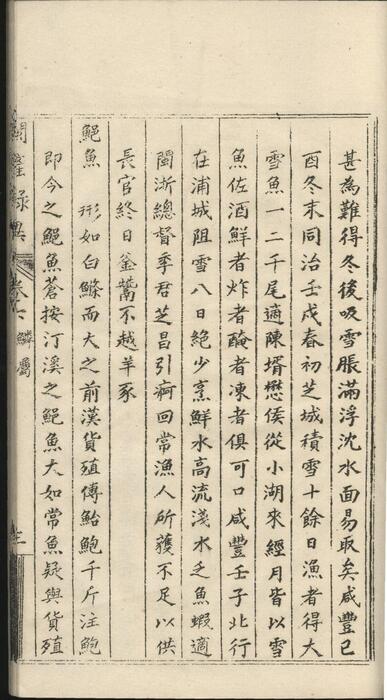 甚為難得冬後吸雪脹滿浮沈水面易取矣咸豐己
酉冬末同治壬戌春初芝城積雪十餘日漁者得大
雪魚一二千尾適陳壻懋侯從小湖來經月皆以雪
魚佐酒鮮者炸者醃者凍者俱可口咸豐壬子北行
在浦城阻雪八日絕少烹鮮水高流淺水乏魚蝦適
閩浙總督季君芝昌引疴回常漁人所獲不足以供
長官終日釜鬵不越羊豕
鮑魚 形如白鰷而大之前漢貨殖傳鮐鮑千斤注鮑
即今之鮑魚蒼按汀溪之鮑魚大如常魚疑與貨殖
錄異 卷六 鱗屬